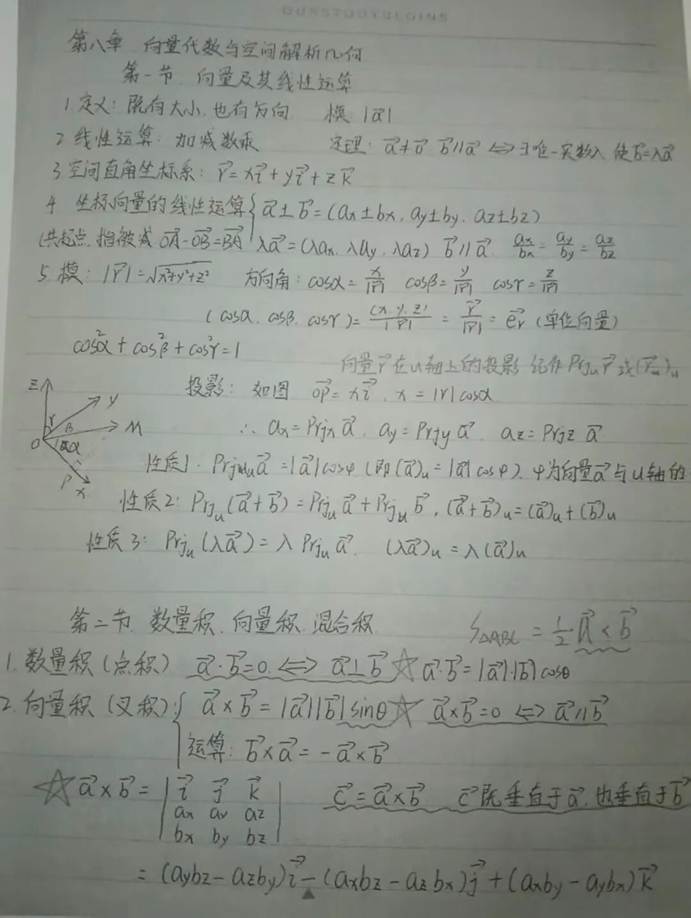 第八章 向量代数与空间解析几何
第一节 向量及其线性运算
1.定义:既有大小,也有方向 模 |a⃗|
2 线性运算:加减数乘 定理:a⃗≠0⃗ b⃗∥a⃗ ⇔ ∃唯一实数λ 使b⃗=λa⃗
3 空间直角坐标系:r⃗=xi⃗+yj⃗+zk⃗
4 坐标向量的线性运算{a⃗±b⃗=(ax±bx, ay±by, az±bz)
(共起点,指被减 OA⃗-OB⃗=BA⃗ λa⃗=(λax, λay, λaz) b⃗∥a⃗ ax/bx=ay/by=az/bz
5.模:|r⃗|=√x²+y²+z² 方向角:cosα=x/|r⃗| cosβ=y/|r⃗| cosγ=z/|r⃗|
(cosα, cosβ, cosγ)=(x,y,z)/|r⃗|=r⃗/|r⃗|=e⃗r (单位向量)
cos²α+cos²β+cos²γ=1
向量r⃗在u轴上的投影 记作Prjᵤr⃗或(r⃗)ᵤ
投影:如图 OP⃗=xi⃗, x=|r|cosα
∴ ax=Prjx a⃗, ay=Prjy a⃗ az=Prjz a⃗
z y O γ β α M P x
性质1. Prjᵤa⃗=|a⃗|cosφ (即(a⃗)ᵤ=|a⃗|cosφ), φ为向量a⃗与u轴的
性质2: Prjᵤ(a⃗+b⃗)=Prjᵤa⃗+Prjᵤb⃗, (a⃗+b⃗)ᵤ=(a⃗)ᵤ+(b⃗)ᵤ
性质3: Prjᵤ(λa⃗)=λPrjᵤa⃗, (λa⃗)ᵤ=λ(a⃗)ᵤ
第二节 数量积,向量积,混合积 S△ABC=1/2 a⃗×b⃗
1.数量积(点积) a⃗·b⃗=0 ⇔ a⃗⊥b⃗ ☆ a⃗·b⃗=|a⃗|·|b⃗|cosθ
2.向量积(叉积):{a⃗×b⃗=|a⃗||b⃗|sinθ ☆ a⃗×b⃗=0 ⇔ a⃗∥b⃗
运算:b⃗×a⃗=-a⃗×b⃗
☆a⃗×b⃗=|i⃗ j⃗ k⃗| c⃗=a⃗×b⃗ c⃗既垂直于a⃗,也垂直于b⃗
ax ay az
bx by bz
=(aybz-azby)i⃗-(axbz-azbx)j⃗+(axby-aybx)k⃗